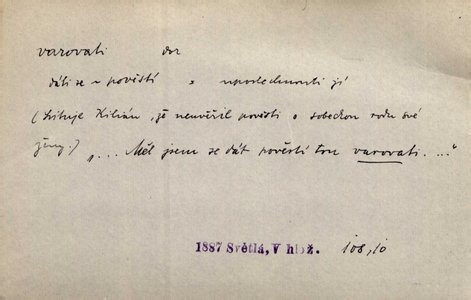 varovati dok
dáti se ~ pověstí = uposlechnouti jí
(Lituje Kilián, že neuvěřil pověsti o sobeckou rodu své
ženy.) „... Měl jsem se dát pověstí tou varovati. ..."
1887 Světlá, V hlož. 108,10